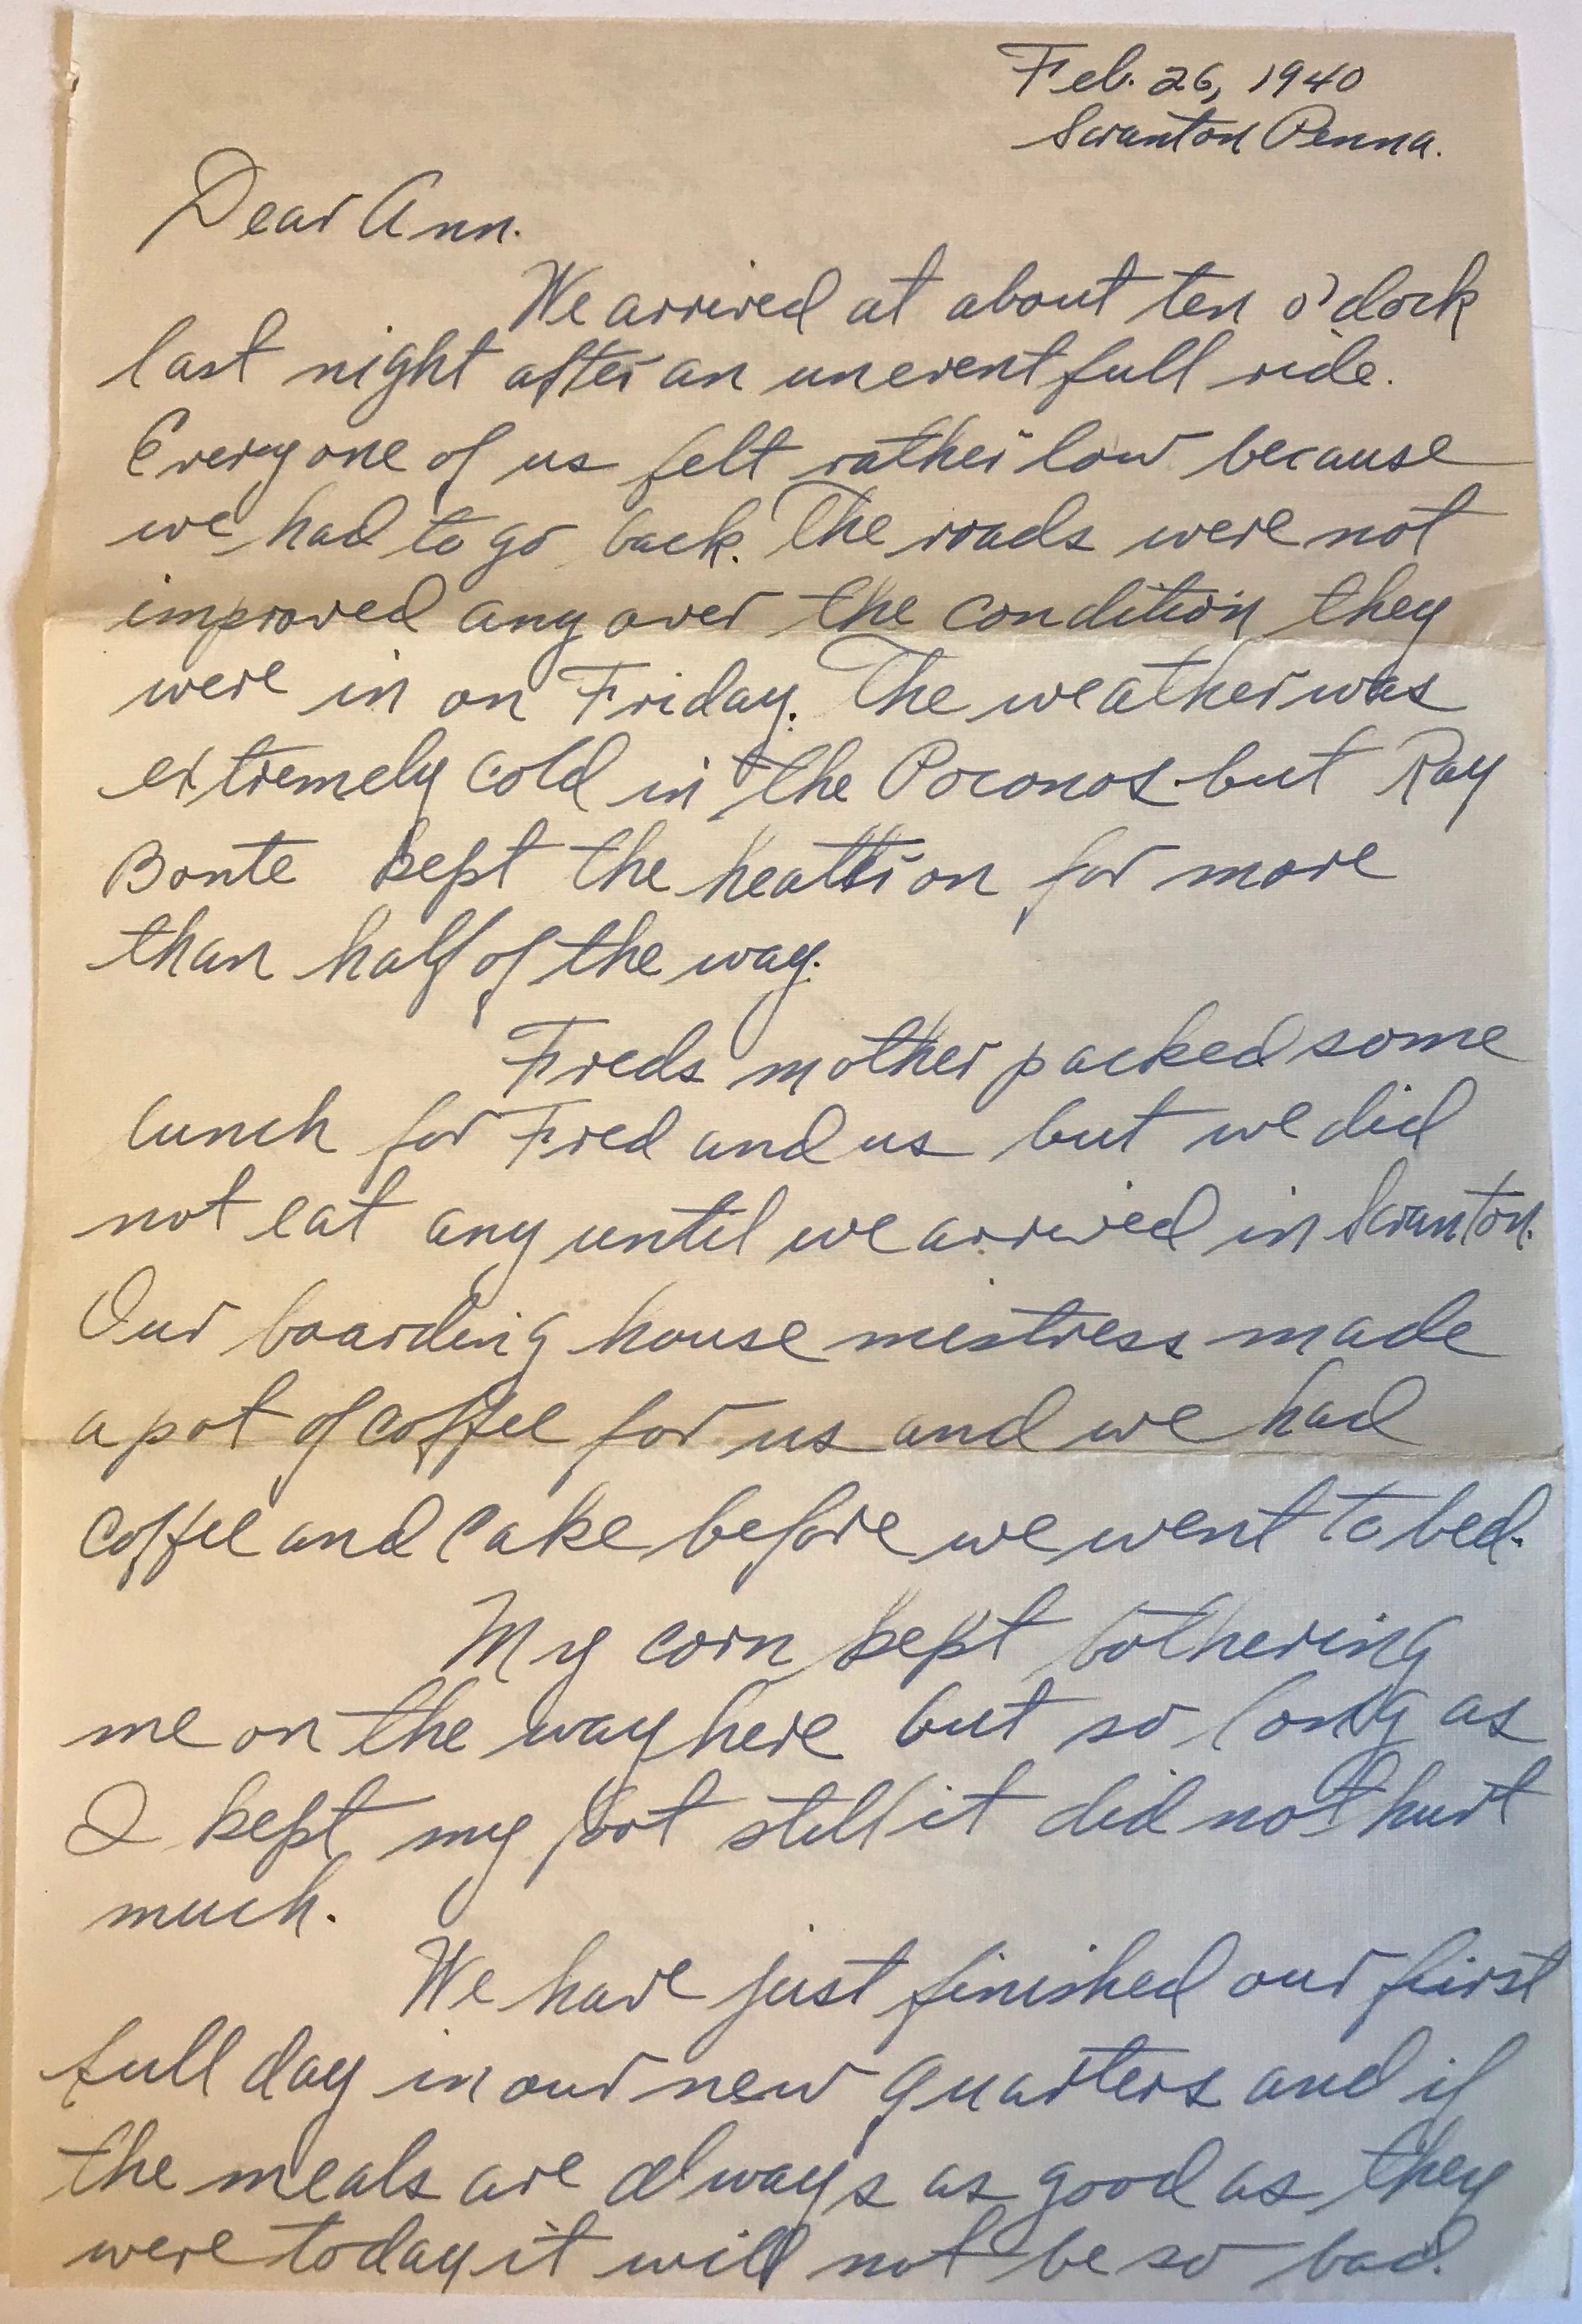 Feb. 26, 1940
Scranton Penna.
Dear Ann.
We arrived at about ten o'clock
last night after an uneventfull ride.
Everyone of us felt rather low because
we had to go back. The roads were not
improved any over the condition they
were in on Friday. The weather was
extremely cold in the Poconos but Ray
Bonte kept the heatter on for more
than half of the way.
Freds mother packed some
lunch for Fred and us but we did
not eat any until we arrived in Scranton.
Our boarding house mistress made
a pot of coffee for us and we had
coffee and cake before we went to bed.
My corn kept bothering
me on the way here but so long as
I kept my foot still it did not hurt
much.
We have just finished our first
full day in our new quarters and if
the meals are always as good as they
were today it will not be so bad.